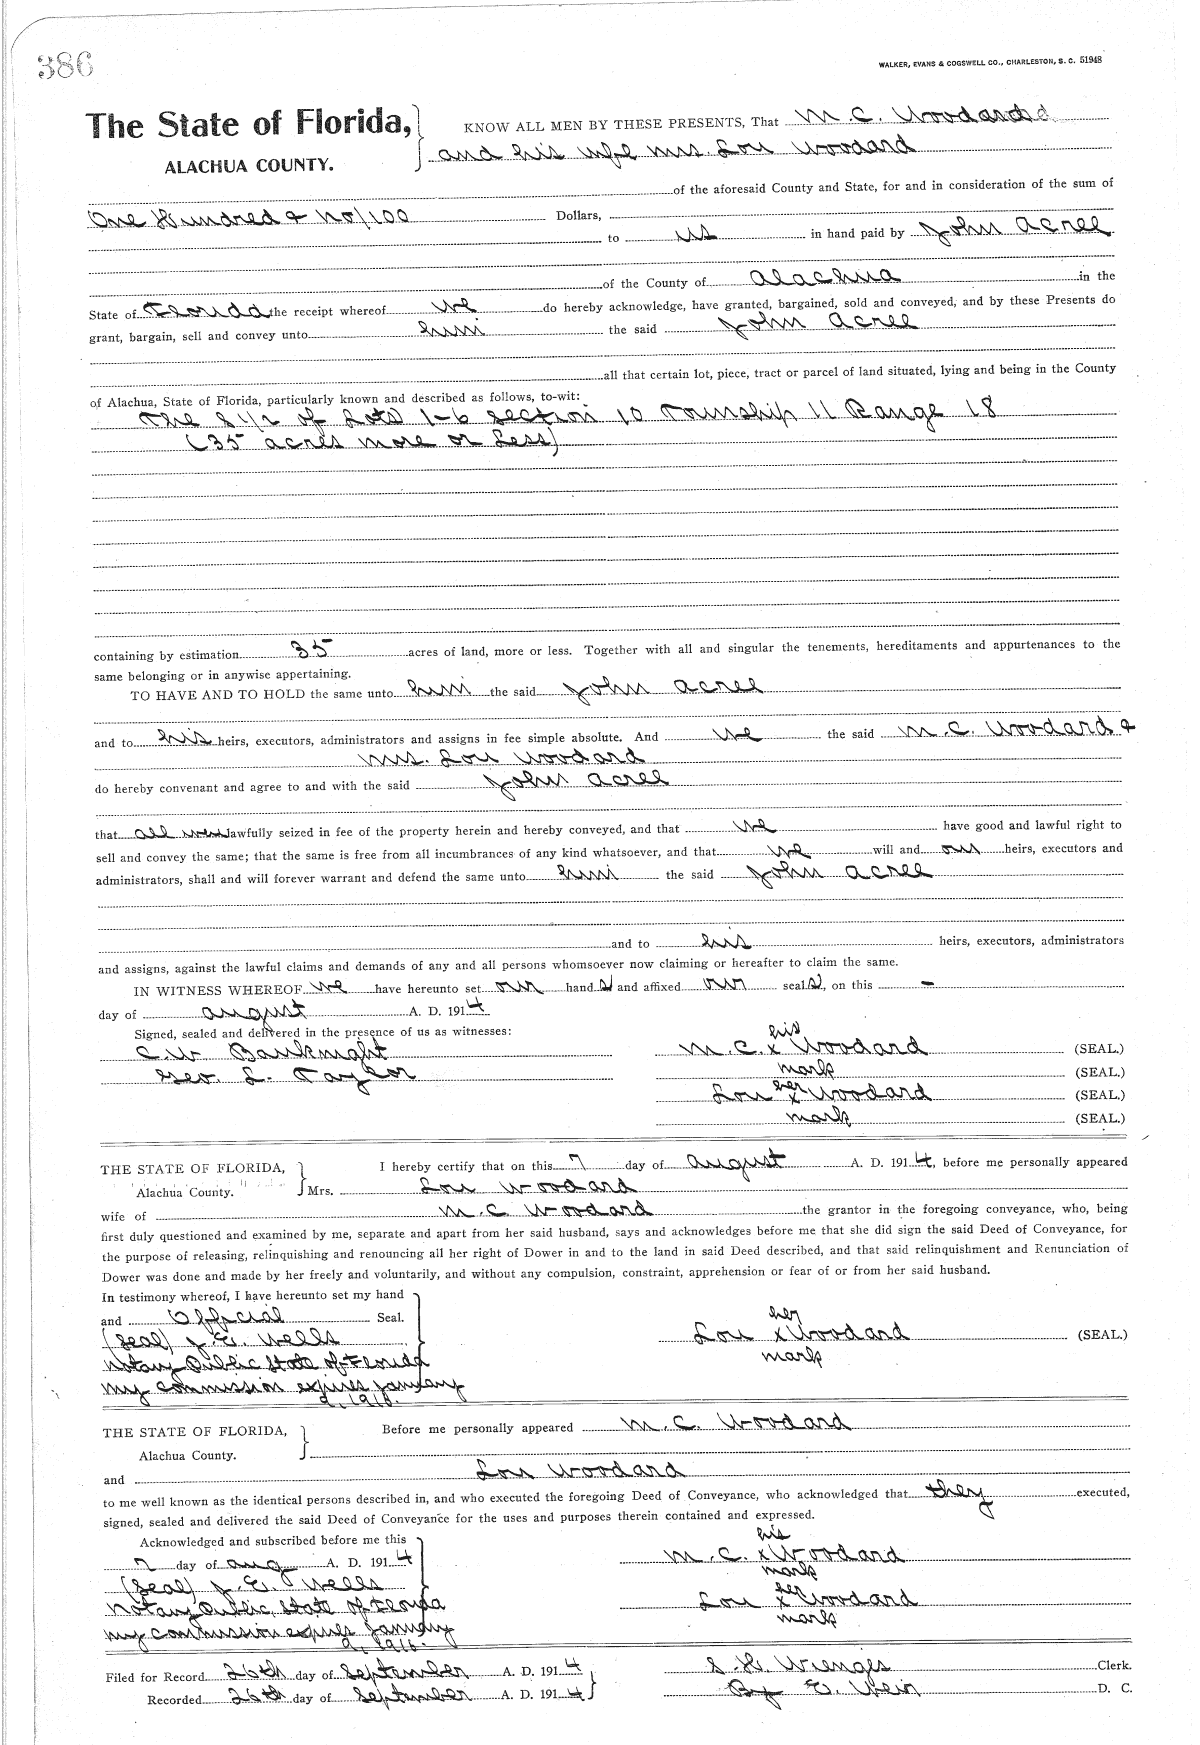 386
WALKER, EVANS & COGSWELL CO., CHARLESTON, S. C. 51948
The State of Florida,
ALACHUA COUNTY.
KNOW ALL MEN BY THESE PRESENTS, That M. C. Woodard
and his wife Mrs. Lou Woodard
of the aforesaid County and State, for and in consideration of the sum of
One Hundred & no/100 Dollars,
to us in hand paid by John Acree
of the County of Alachua in the
State of Florida the receipt whereof we do hereby acknowledge, have granted, bargained, sold and conveyed, and by these Presents do
grant, bargain, sell and convey unto him the said John Acree
all that certain lot, piece, tract or parcel of land situated, lying and being in the County
of Alachua, State of Florida, particularly known and described as follows, to-wit:
The S 1/2 of Lots 1-6 Section 10 Township 11 Range 18
(35 acres more or Less)
containing by estimation 35 acres of land, more or less. Together with all and singular the tenements, hereditaments and appurtenances to the
same belonging or in anywise appertaining.
TO HAVE AND TO HOLD the same unto him the said John Acree
and to his heirs, executors, administrators and assigns in fee simple absolute. And we the said M. C. Woodard &
Mrs. Lou Woodard
do hereby convenant and agree to and with the said John Acree
that all lawfully seized in fee of the property herein and hereby conveyed, and that we have good and lawful right to
sell and convey the same; that the same is free from all incumbrances of any kind whatsoever, and that we will and our heirs, executors and
administrators, shall and will forever warrant and defend the same unto him the said John Acree
and to his heirs, executors, administrators
and assigns, against the lawful claims and demands of any and all persons whomsoever now claiming or hereafter to claim the same.
IN WITNESS WHEREOF we have hereunto set our hand s and affixed our seal s, on this -
day of August A. D. 1914
Signed, sealed and delivered in the presence of us as witnesses:
C. W. Bauknight
Geo. L. Taylor
his
M. C. x Woodard (SEAL.)
mark (SEAL.)
her
Lou x Woodard (SEAL.)
mark (SEAL.)
THE STATE OF FLORIDA,
Alachua County.
I hereby certify that on this 7 day of August A. D. 1914, before me personally appeared
Mrs. Lou Woodard
wife of M. C Woodard the grantor in the foregoing conveyance, who, being
first duly questioned and examined by me, separate and apart from her said husband, says and acknowledges before me that she did sign the said Deed of Conveyance, for
the purpose of releasing, relinquishing and renouncing all her right of Dower in and to the land in said Deed described, and that said relinquishment and Renunciation of
Dower was done and made by her freely and voluntarily, and without any compulsion, constraint, apprehension or fear of or from her said husband.
In testimony whereof, I have hereunto set my hand
and Official Seal.
(Seal) J. E. Wells
Notary Public State of Florida
my commission expires January
9, 1916.
her
Lou x Woodard (SEAL.)
mark
THE STATE OF FLORIDA,
Alachua County.
Before me personally appeared M. C. Woodard
and Lou Woodard
to me well known as the identical persons described in, and who executed the foregoing Deed of Conveyance, who acknowledged that they executed,
signed, sealed and delivered the said Deed of Conveyance for the uses and purposes therein contained and expressed.
Acknowledged and subscribed before me this
7 day of Aug A. D. 1914
(Seal) J. E. Wells
Notary Public, State of Florida
my commission expires January
9, 1916.
his
M. C. x Woodard
mark
her
Lou x Woodard
mark
Filed for Record 26th day of September A. D. 1914
Recorded 26th day of September A. D. 1914
S. H. Wienges Clerk.
By E. D. C.